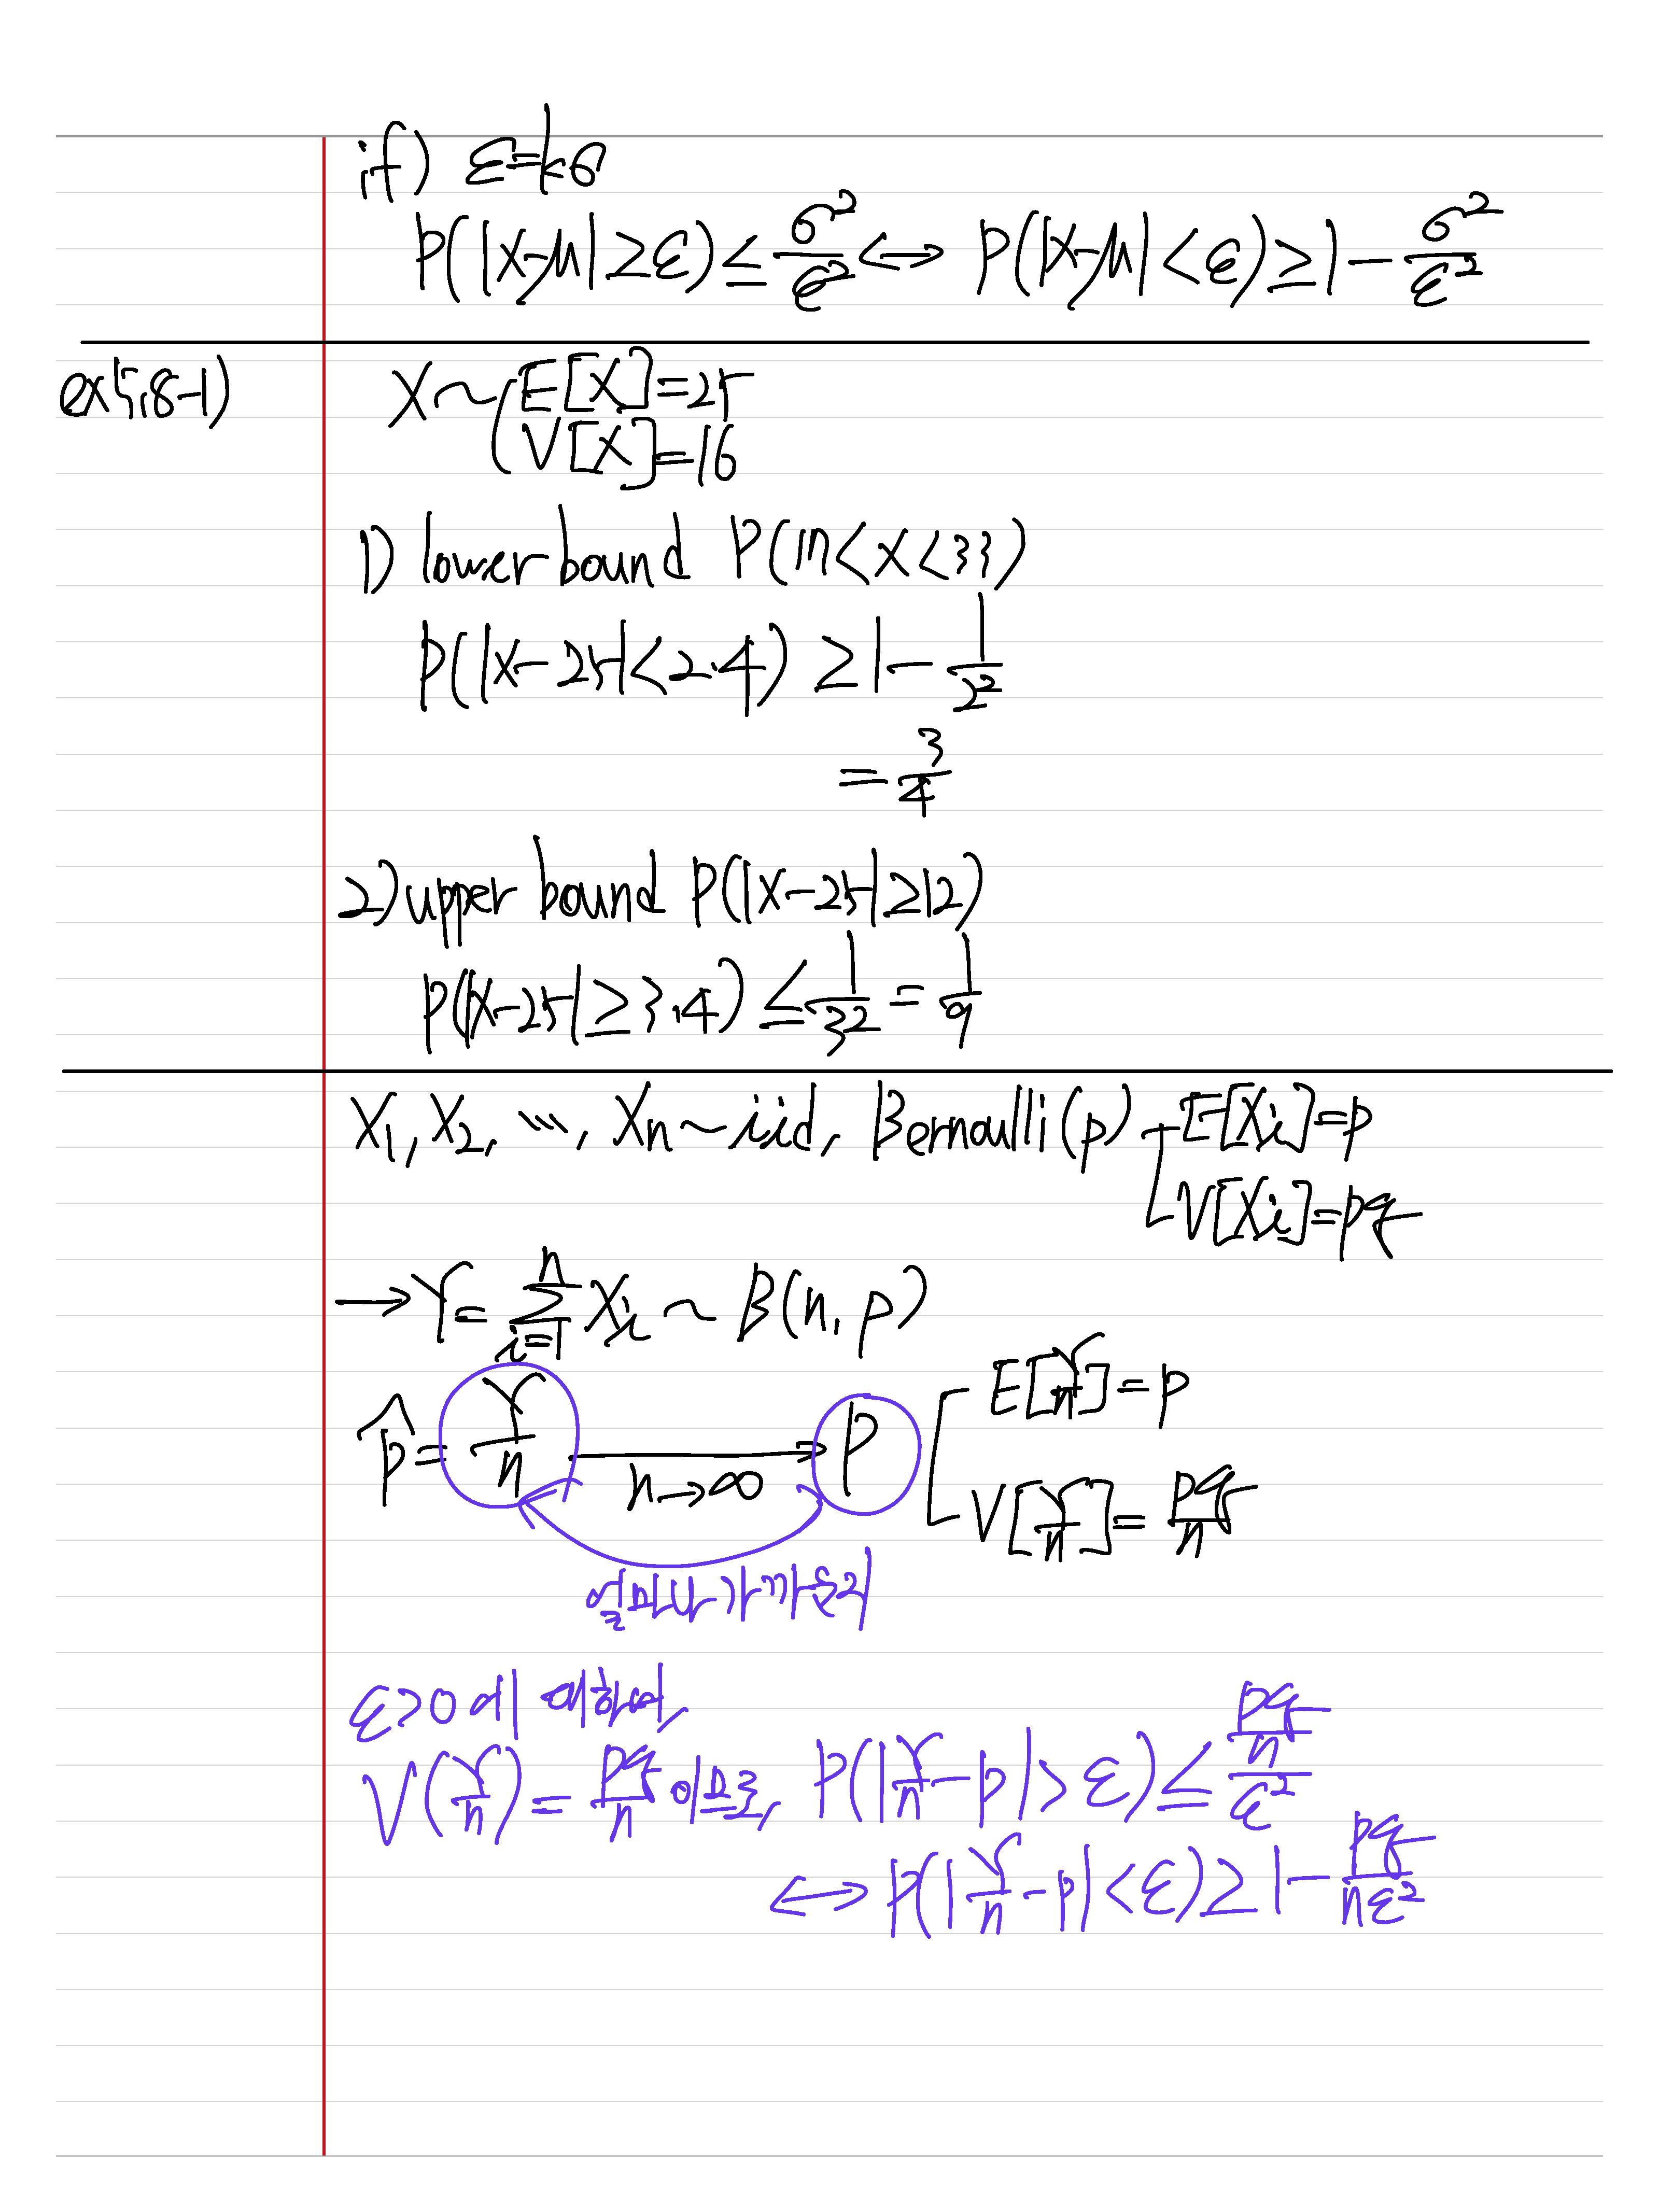 if) ε=kσ
P(|X-μ|≥ε)≤σ²/ε² ↔ P(|X-μ|<ε)≥1-σ²/ε²
ex5.8-1) X~(E[X]=25
V[X]=16
1) lower bound P(17<X<33)
P(|X-25|<2·4) ≥1-1/2²
=3/4
2) upper bound P(|X-25|≥12)
P(|X-25|≥3·4) ≤1/3²=1/9
X₁, X₂, ..., Xn~iid, Bernoulli(p) E[Xi]=p
V[Xi]=pq
→Y=∑ⁿᵢ₌₁Xi~B(n, p)
p̂=Y/n → p E[Y/n]=p
n→∞ V[Y/n]=pq/n
얼마나 가까운지
ε>0에 대하여,
V(Y/n)=pq/n 이므로, P(|Y/n-p|>ε)≤(pq/n)/ε²
↔P(|Y/n-p|<ε)≥1-pq/nε²